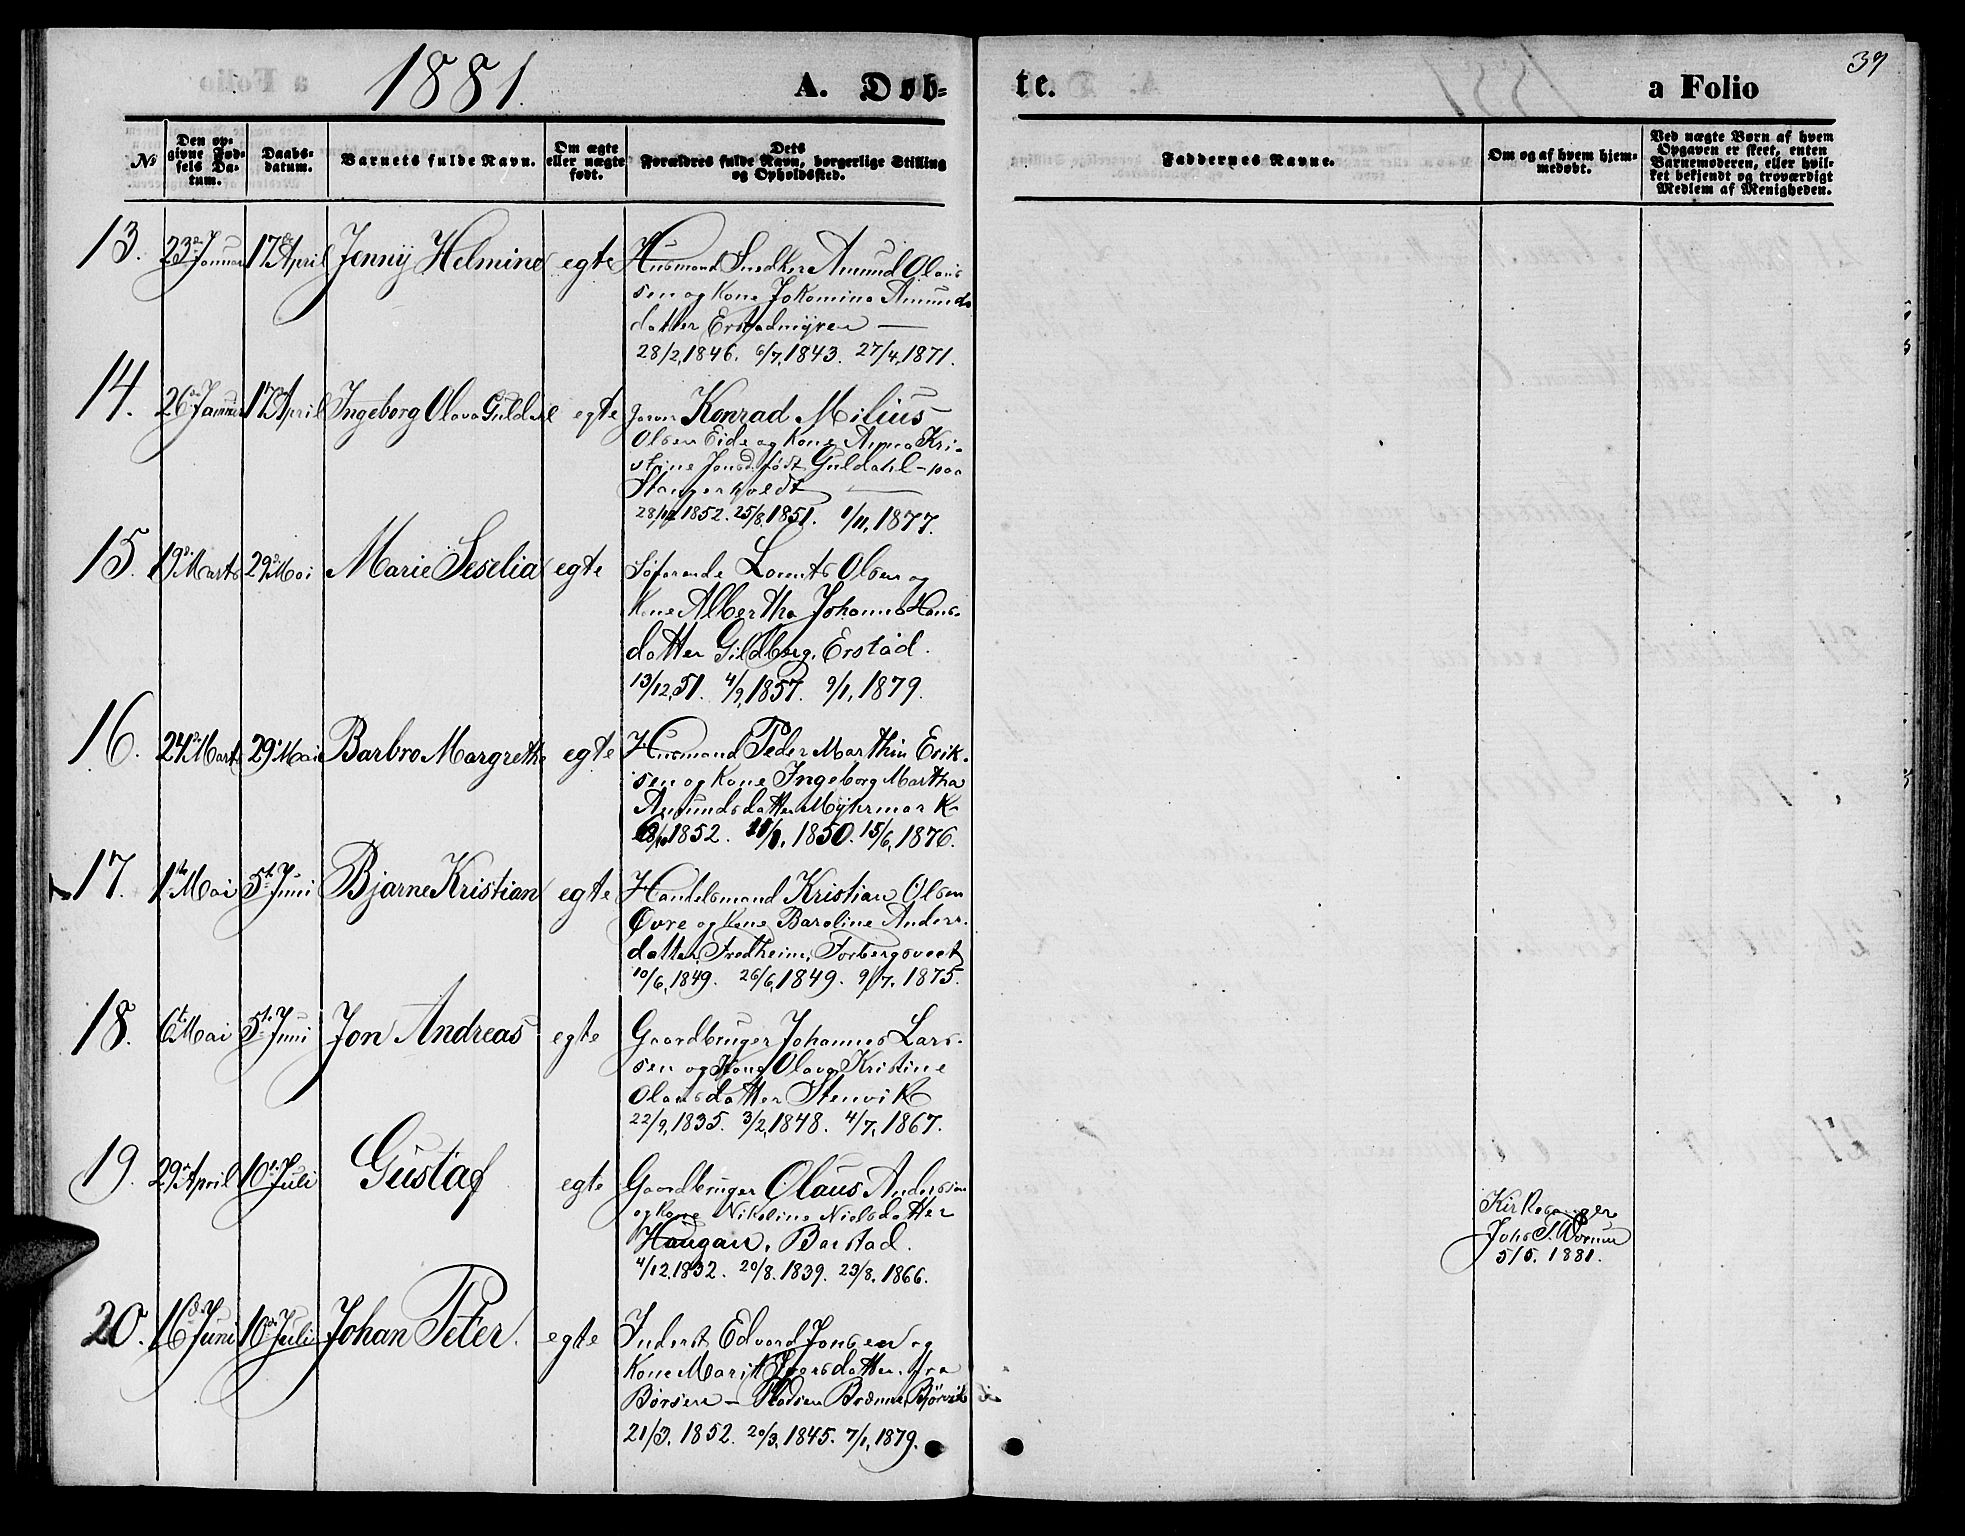 1881.
A. Døb-
te.
a Folio
39
No
Den op-
givne Fød-
sels Da-
tum.
Daabs-
datum.
Barnets fulde Navn.
Om ægte
eller uægte
født.
Dets
Forældres fulde Navn, borgerlige Stilling
og Opholdssted.
Faddernes Navne.
Om og af hvem hjem-
medøbt.
Ved uægte Børn af hvem
Opgaven er skeet, enten
Barnemoderen, eller hvil-
ket bekjendt og troværdigt
Medlem af Menigheden.
13. 23de Januar 17de April Jenny Helmine egte Husmand Snedker Amund Olaus
sen og Kone Jokomina Amunds
datter Erstadmyren —
28/2, 1846. 6/7, 1843. 27/4, 1871.
14. 26de Januar 17de April Ingeborg Olava Guldahl egte Konrad Milius
Olsen Eide og Kone Anna Kri-
stine Jonsd. født Guldahl - paa
Stangerholdt —
1852. 25/8, 1851. 1/11, 1877.
15. 19de Marts 29de Mai Marie Seselia egte Søfarende Lorents Olsen og
Kone Albertha Johanna Hans-
datter Gildberg, Erstad.
13/12, 51. 4/9, 1857. 9/1, 1879.
16. 24de Marts 29de Mai Barbro Margrethe egte Husmand Peder Marthin Erik-
sen og Kone Ingeborg Martha
Amundsdatter Myhrmark
1852. 1850. 15/6, 1876.
17. 1ste Mai 5te Juni Bjarne Kristian egte Handelsmand Kristian Olsen
Øvre og Kone Baroline Anders-
datter, Fredheim, Forbergsvect
10/6, 1849. 26/6, 1849. 9/7, 1875.
18. 6te Mai 5te Juni Jon Andreas egte Gaardbruger Johannes Lars-
sen og Kone Olava Kristine
Olausdatter Stenvik
22/9, 1835. 3/2, 1848. 4/7, 1867.
19. 29de April 10de Juli Gustaf egte Gaardbruger Olaus Anderssen
og Kone Nikoline Nielsdatter
Haugan, Barstad.
4/12, 1832. 20/8. 1839. 23/8, 1866.
Kirkesanger
Johs
5/5. 1881.
20. 16de Juni 10de Juli Johan Peter egte Inderst Edvard Jonsen og
Kone Marit Iversdatter fra
Børsen —
21/3, 1852. 20/3, 1845. 7/1, 1879.